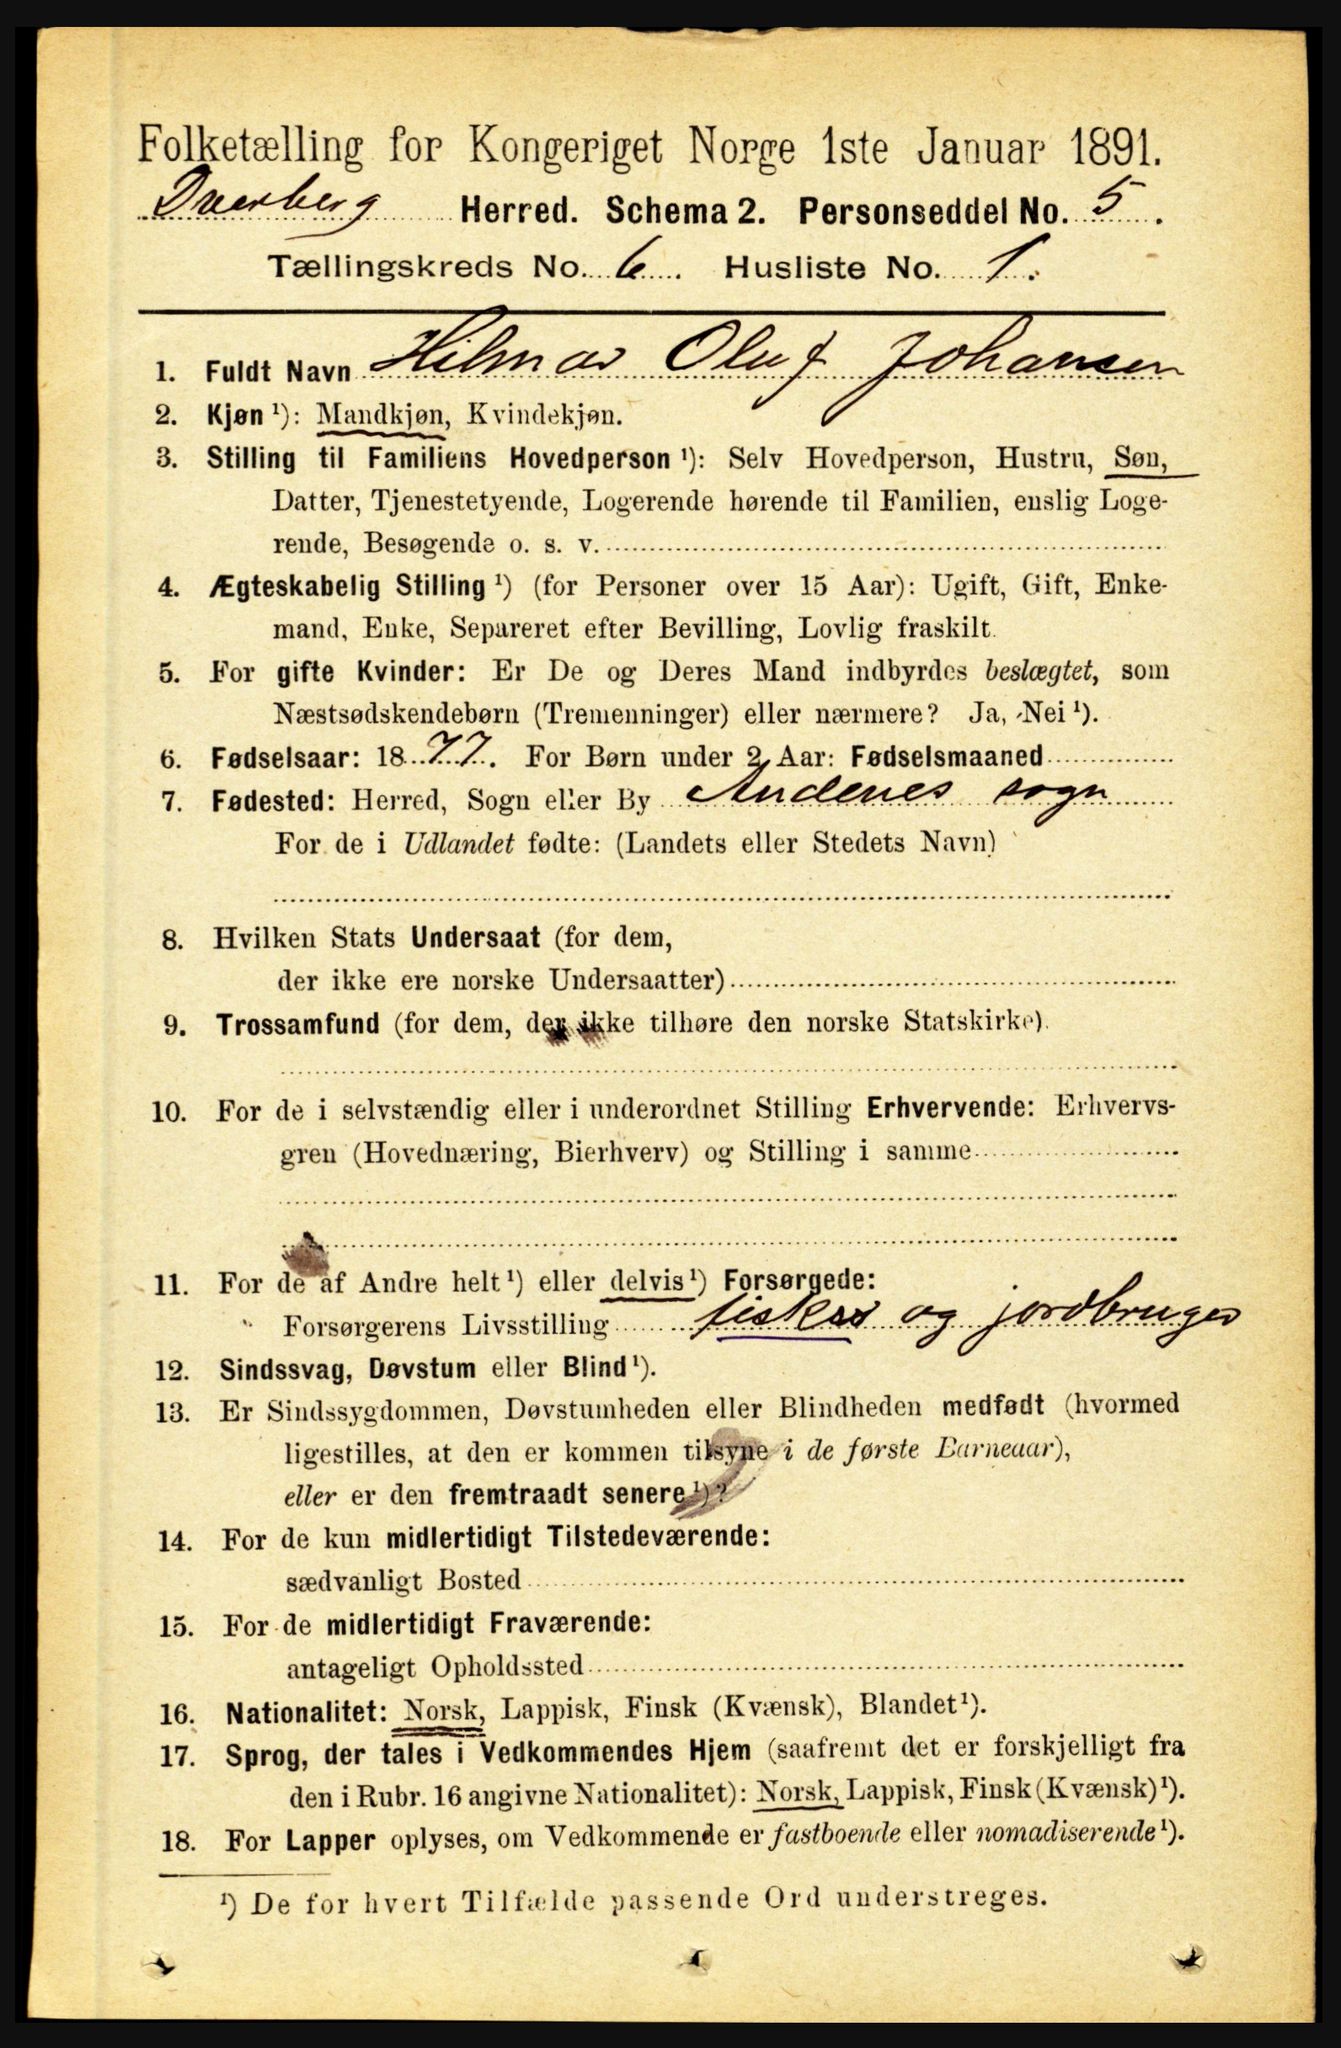 Folketælling for Kongeriget Norge 1ste Januar 1891.
Dverberg Herred. Schema 2. Personseddel No. 5.
Tællingskreds No. 6. Husliste No. 1.
1. Fuldt Navn Hilmar Oluf Johansen
2. Kjøn ¹): Mandkjøn, Kvindekjøn.
3. Stilling til Familiens Hovedperson ¹): Selv Hovedperson, Hustru, Søn,
Datter, Tjenestetyende, Logerende hørende til Familien, enslig Loge-
rende, Besøgende o. s. v.
4. Ægteskabelig Stilling ¹) (for Personer over 15 Aar): Ugift, Gift, Enke-
mand, Enke, Separeret efter Bevilling, Lovlig fraskilt.
5. For gifte Kvinder: Er De og Deres Mand indbyrdes beslægtet, som
Næstsødskendebørn (Tremenninger) eller nærmere? Ja, Nei ¹).
6. Fødselsaar: 1877. For Børn under 2 Aar: Fødselsmaaned
7. Fødested: Herred, Sogn eller By Andenes sogn
For de i Udlandet fødte: (Landets eller Stedets Navn)
8. Hvilken Stats Undersaat (for dem,
der ikke ere norske Undersaatter)
9. Trossamfund (for dem, der ikke tilhøre den norske Statskirke).
10. For de i selvstændig eller i underordnet Stilling Erhvervende: Erhvervs-
gren (Hovednæring, Bierhverv) og Stilling i samme
11. For de af Andre helt ¹) eller delvis ¹) Forsørgede:
Forsørgerens Livsstilling fisker og jordbruger
12. Sindssvag, Døvstum eller Blind ¹).
13. Er Sindssygdommen, Døvstumheden eller Blindheden medfødt (hvormed
ligestilles, at den er kommen tilsyne i de første Barneaar),
eller er den fremtraadt senere ¹)?
14. For de kun midlertidigt Tilstedeværende:
sædvanligt Bosted
15. For de midlertidigt Fraværende:
antageligt Opholdssted
16. Nationalitet: Norsk, Lappisk, Finsk (Kvænsk), Blandet ¹).
17. Sprog, der tales i Vedkommendes Hjem (saafremt det er forskjelligt fra
den i Rubr. 16 angivne Nationalitet): Norsk, Lappisk, Finsk (Kvænsk) ¹).
18. For Lapper oplyses, om Vedkommende er fastboende eller nomadiserende ¹).
¹) De for hvert Tilfælde passende Ord understreges.